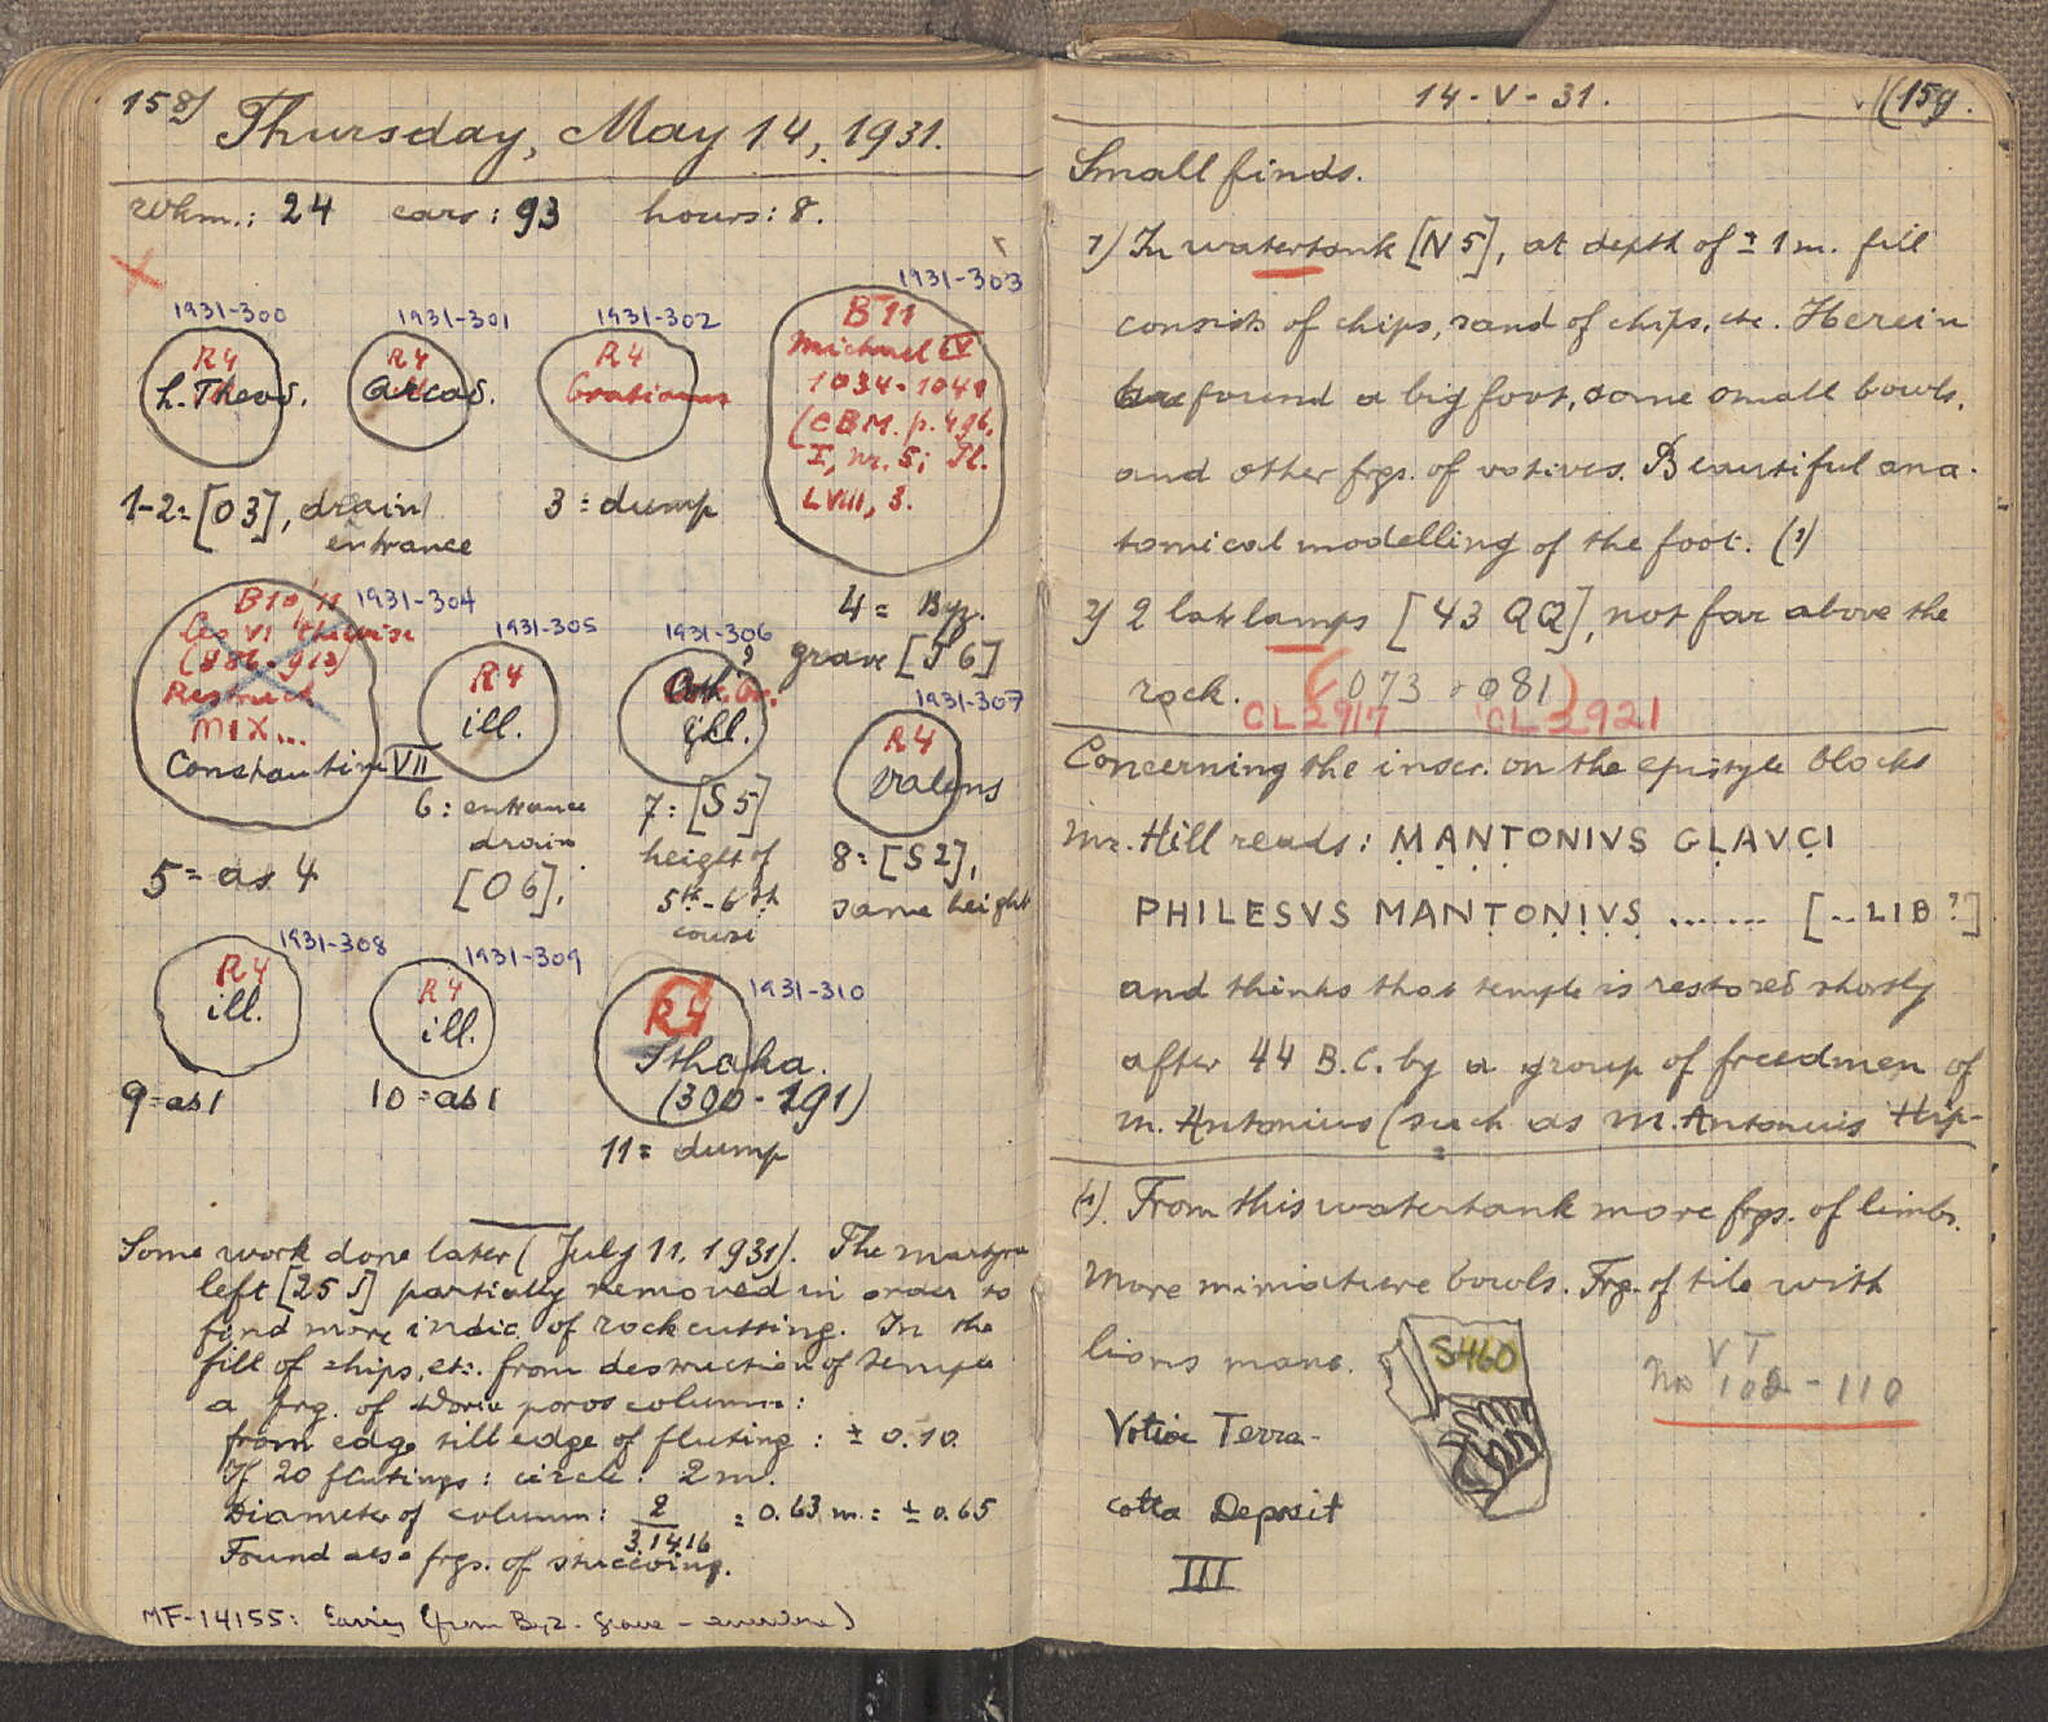 158)
Thursday, May 14, 1931.
wkm.: 24 cars: 93 hours: 8.
1931-300
R4
h. Theod.
1931-301
R4
Arcad.
1931-302
R4
Gratianus
1931-303
B 11
Michael IV
1034-1041
(CBM. p. 496,
I, nr. 5; Pl.
LVIII, 3.
1-2: [O3], drain
entrance
3 = dump
4 = Byz.
grave [T6]
1931-304
B10, 11
Leo VI the wise
(886-912)
Restruck
MIX...
Constantine VII
5 = as 4
1931-305
R4
ill.
6: entrance
drain
[O6],
1931-306
?
ill.
7: [S5]
height of
5th-6th
course
1931-307
R4
Valens
8: [S2],
same height
1931-308
R4
ill.
9 = as 1
1931-309
R4
ill.
10 = as 1
1931-310
R4
Ithaka.
(300-191)
11 = dump
Some work done later (July 11, 1931). The
left [25 J] partially removed in order to
find more indic. of rockcutting. In the
fill of chips, etc. from destruction of temple
a frg. of Doric poros column:
from edge till edge of fluting: ± 0.10.
If 20 flutings: circle: 2m.
Diameter of column: 2 / 3.1416 = 0.63 m. = ± 0.65
Found also frgs. of stuccoing.
MF-14155: Earring (from Byz. grave - )
14-V-31.
(159.
Small finds.
1) In watertank [N5], at depth of ± 1 m. fill
consists of chips, sand of chips, etc. Herein
found a big foot, some small bowls,
and other frgs. of votives. Beautiful ana-
tomical modelling of the foot. (1)
2) 2 late lamps [43 QQ], not far above the
rock. (073 + 081)
CL 2917 CL 2921
Concerning the inscr. on the epistyle blocks
Mr. Hill reads: MANTONIVS GLAVCI
PHILESVS MANTONIVS ....... [..LIB?]
and thinks that temple is restored shortly
after 44 B.C. by a group of freedmen of
M. Antonius (such as M. Antonius Hip-
(1). From this watertank more frgs. of limbs.
More miniature bowls. Frg. of tile with
lions mane.
S460
VT
No 102-110
Votive Terra-
cotta Deposit
III